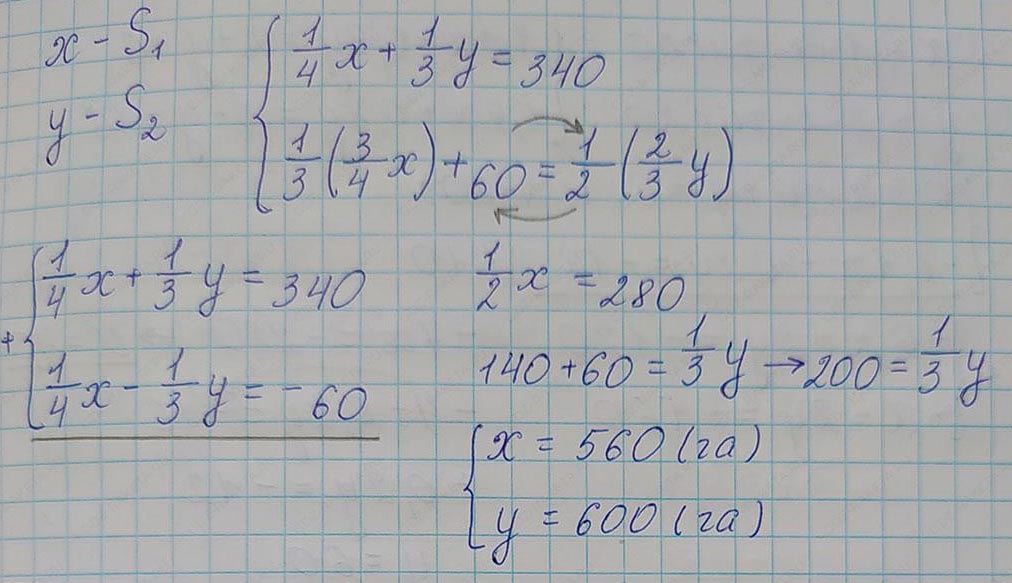 x - S₁
y - S₂
{ 1/4 x + 1/3 y = 340
{ 1/3 (3/4 x) + 60 = 1/2 (2/3 y)
+ { 1/4 x + 1/3 y = 340
{ 1/4 x - 1/3 y = - 60
1/2 x = 280
140 + 60 = 1/3 y → 200 = 1/3 y
{ x = 560 (га)
{ y = 600 (га)